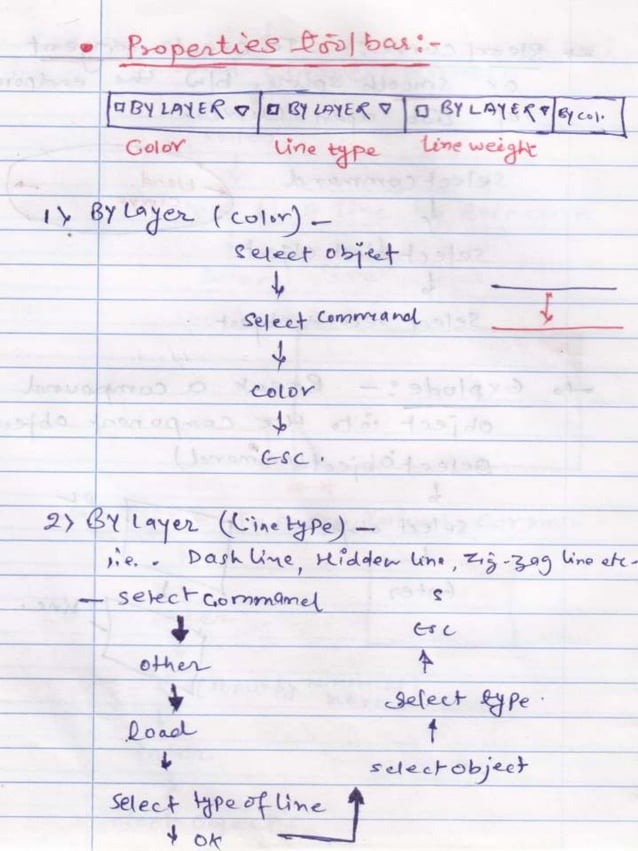 • Properties toolbar:-
BY LAYER BY LAYER BY LAYER By Col.
Color Line type Line weight
1) BY Layer (color) -
Select object
↓
Select Command
↓
color
↓
ESC.
2) BY Layer (Linetype) -
i.e. - Dash line, Hidden line, Zig-Zag line etc-
- select Command
↓
other
↓
Load
↓
Select type of line
↓ OK
select object
↑
Select type.
↑
ESC
s